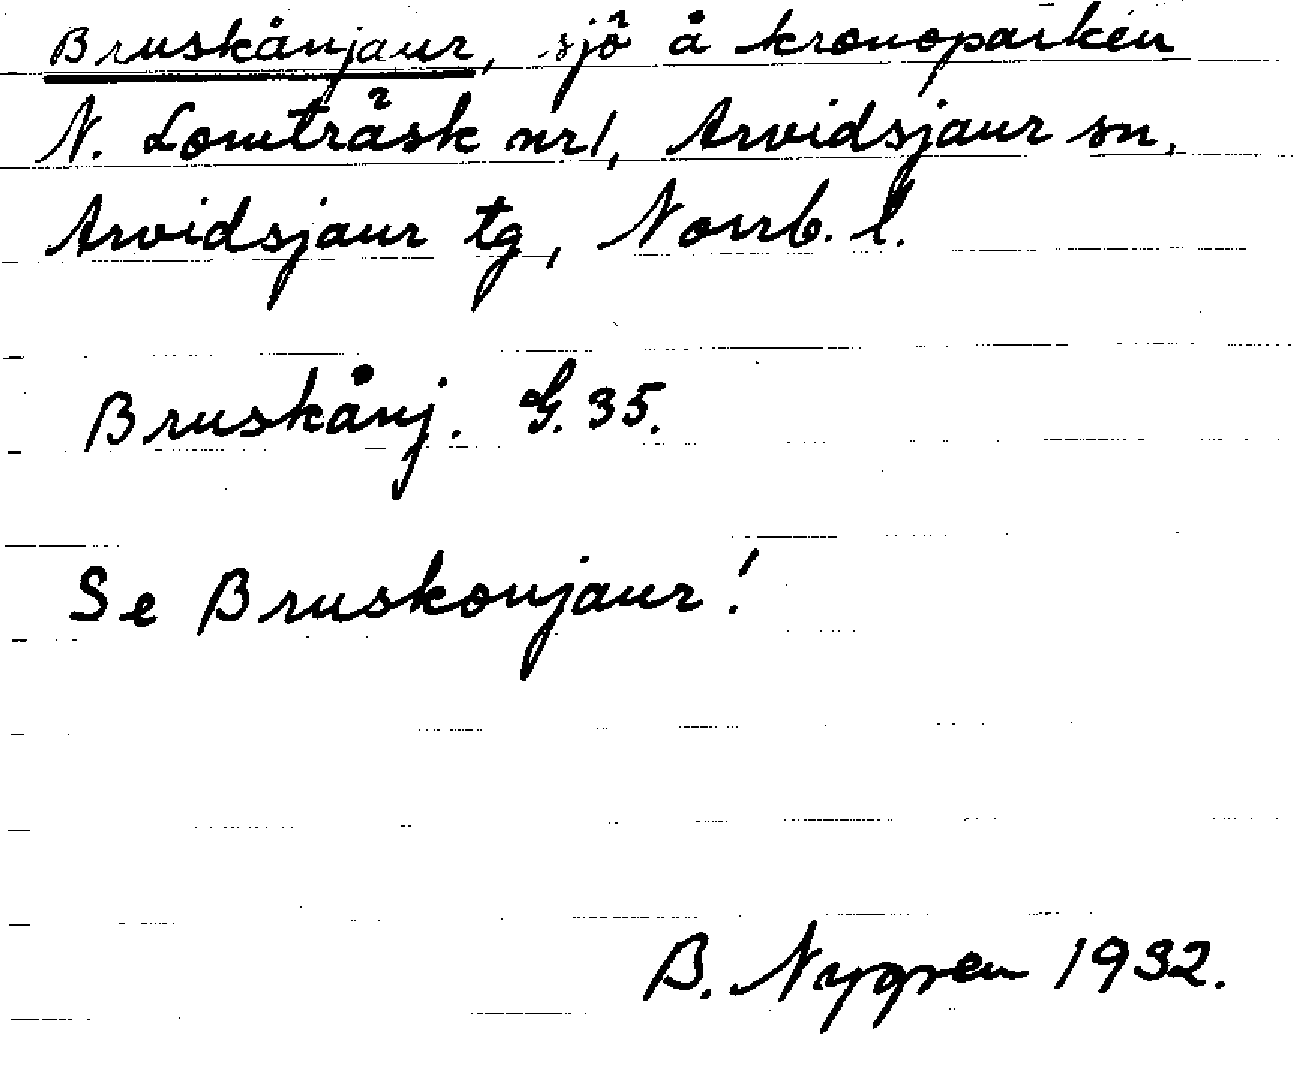 Bruskånjaur, sjö å kronoparken
N. Lomträsk nr 1, Arvidsjaur sn,
Arvidsjaur tg, Norrb. l.
Bruskånj. G. 35.
Se Bruskonjaur!
B. Nygren 1932.